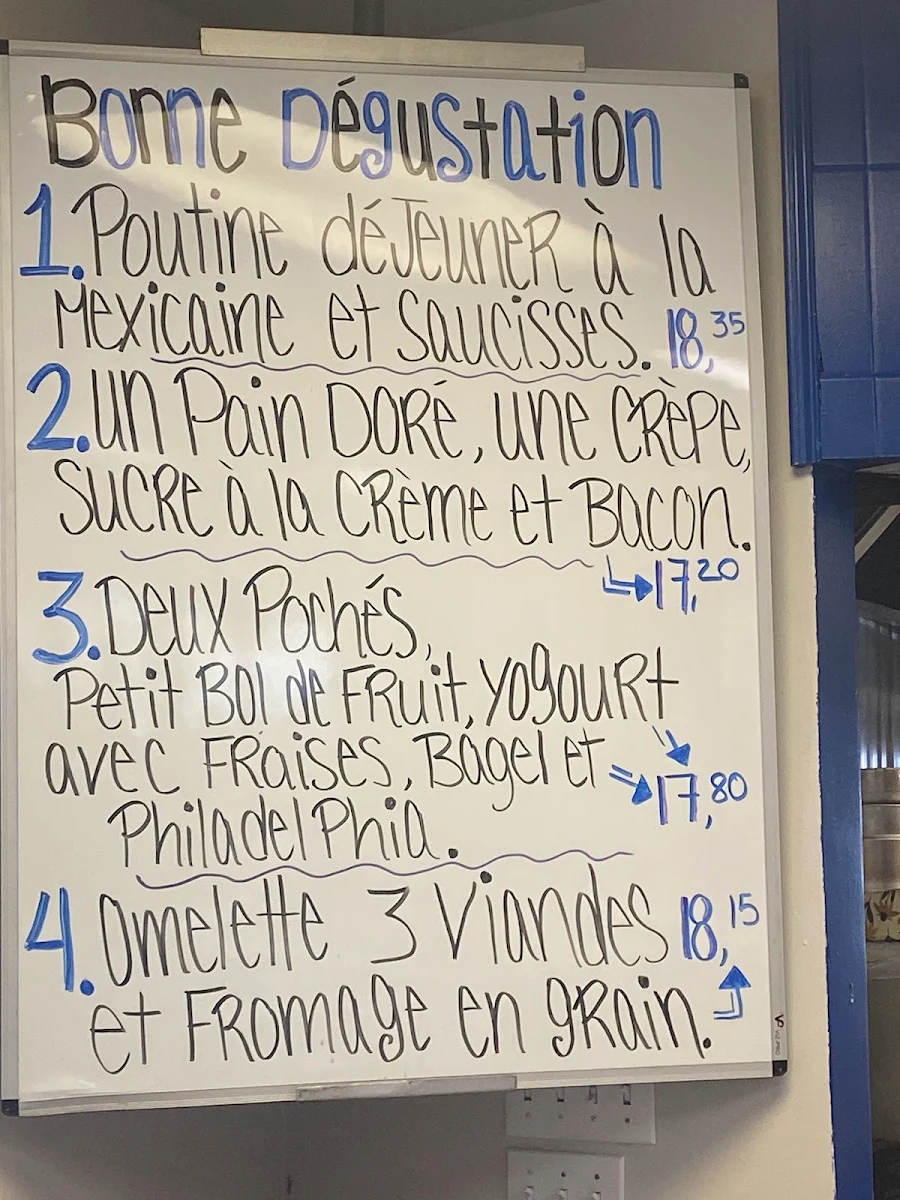 Bonne Dégustation
1. Poutine déJeuneR à la
Mexicaine et saucisses. 18,35
2. un Pain DORé, une CRèPE,
sucRe à la CRème et Bacon.
17,20
3. Deux Pochés,
Petit Bol de FRuit, yogouRt
avec FRaises, Bagel et
17,80
PhiladelPhia.
4. Omelette 3 Viandes 18,15
et FRomage en gRain.